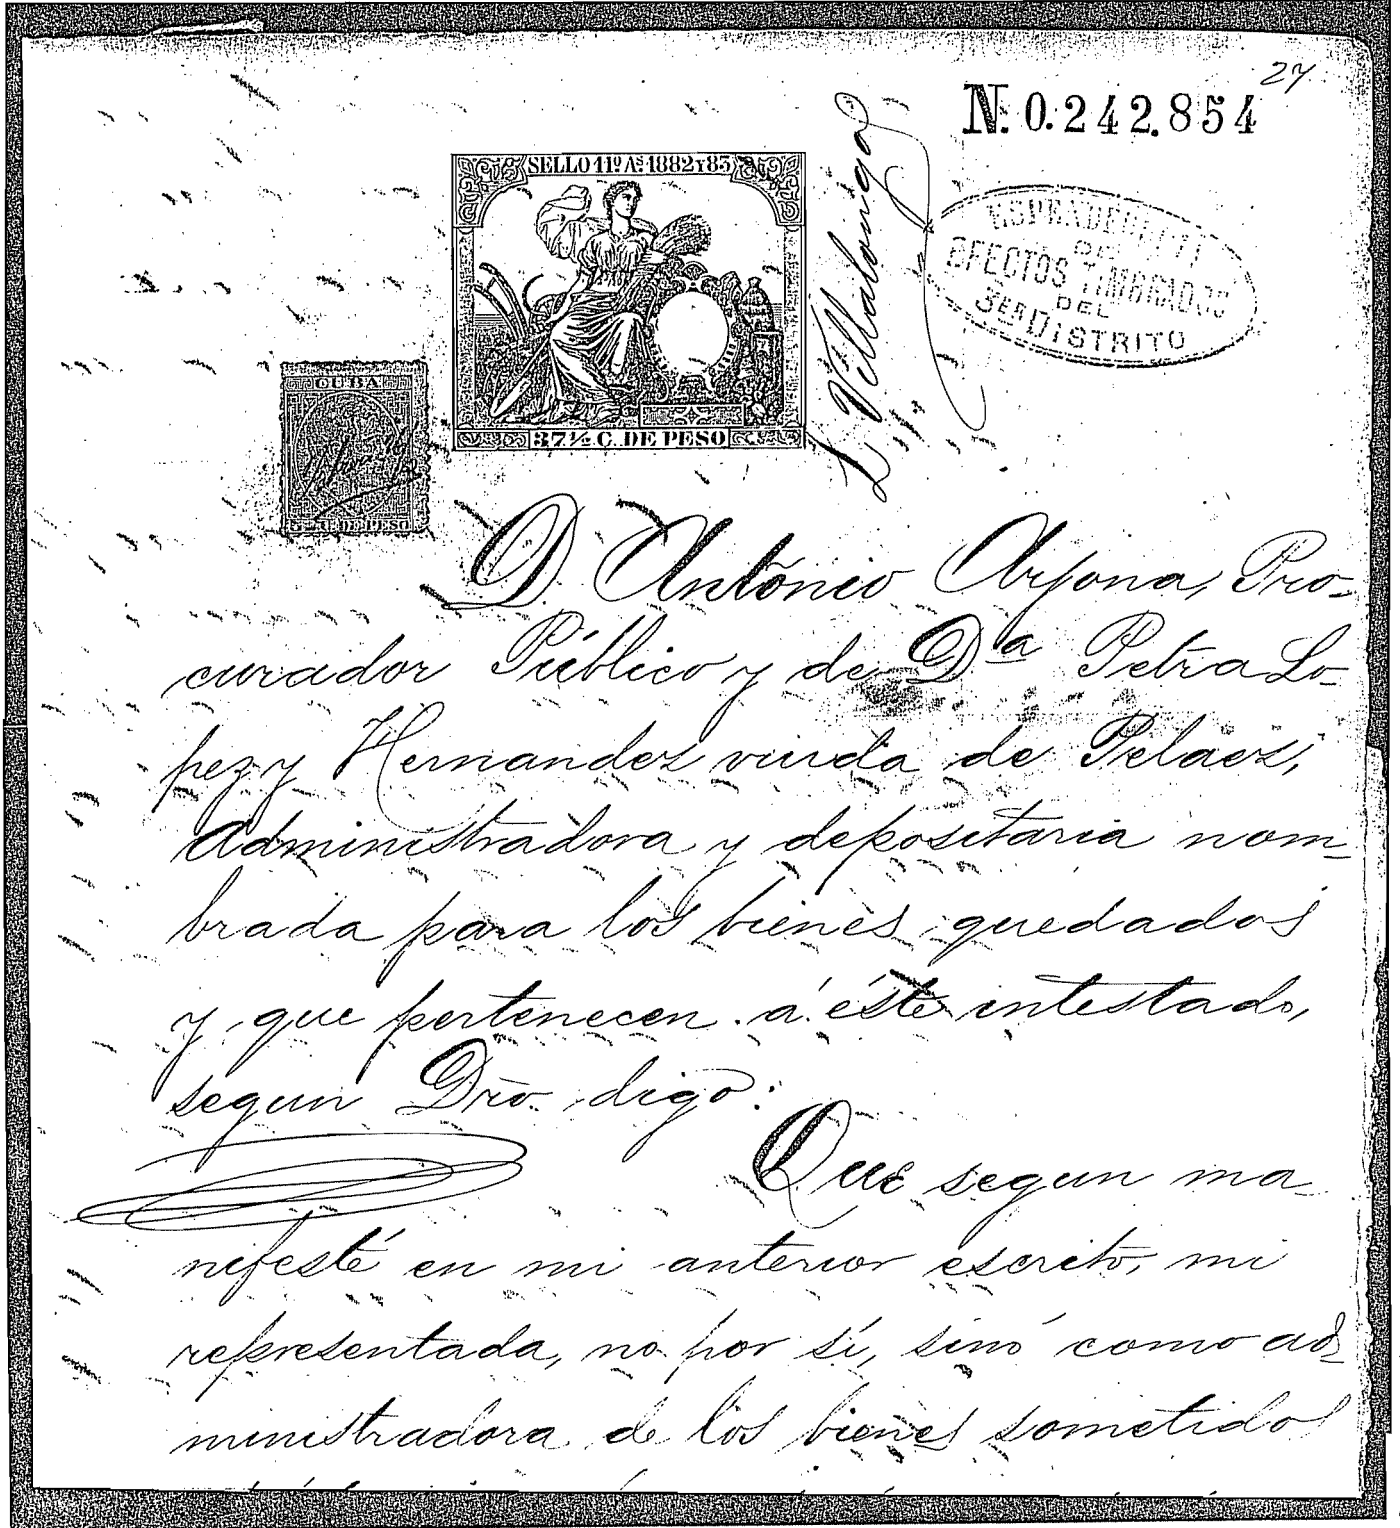 27
N. 0.242.854
SELLO 11º Aˢ 1882 Y 83
L Villalonga
DE
EFECTOS TIMBRADOS
DEL
3ER DISTRITO
CUBA
C. DE PESO
37½ C. DE PESO
D. Antonio Arjona, Pro-
curador Público y de Dª Petra Lo-
pez y Hernandez viuda de Pelaez,
Administradora y depositaria nom-
brada para los bienes quedados
y que pertenecen á éste intestado,
segun Dro. digo:
Que segun ma-
nifesté en mi anterior escrito, mi
representada, no por sí, sinó como ad-
ministradora de los bienes sometidos